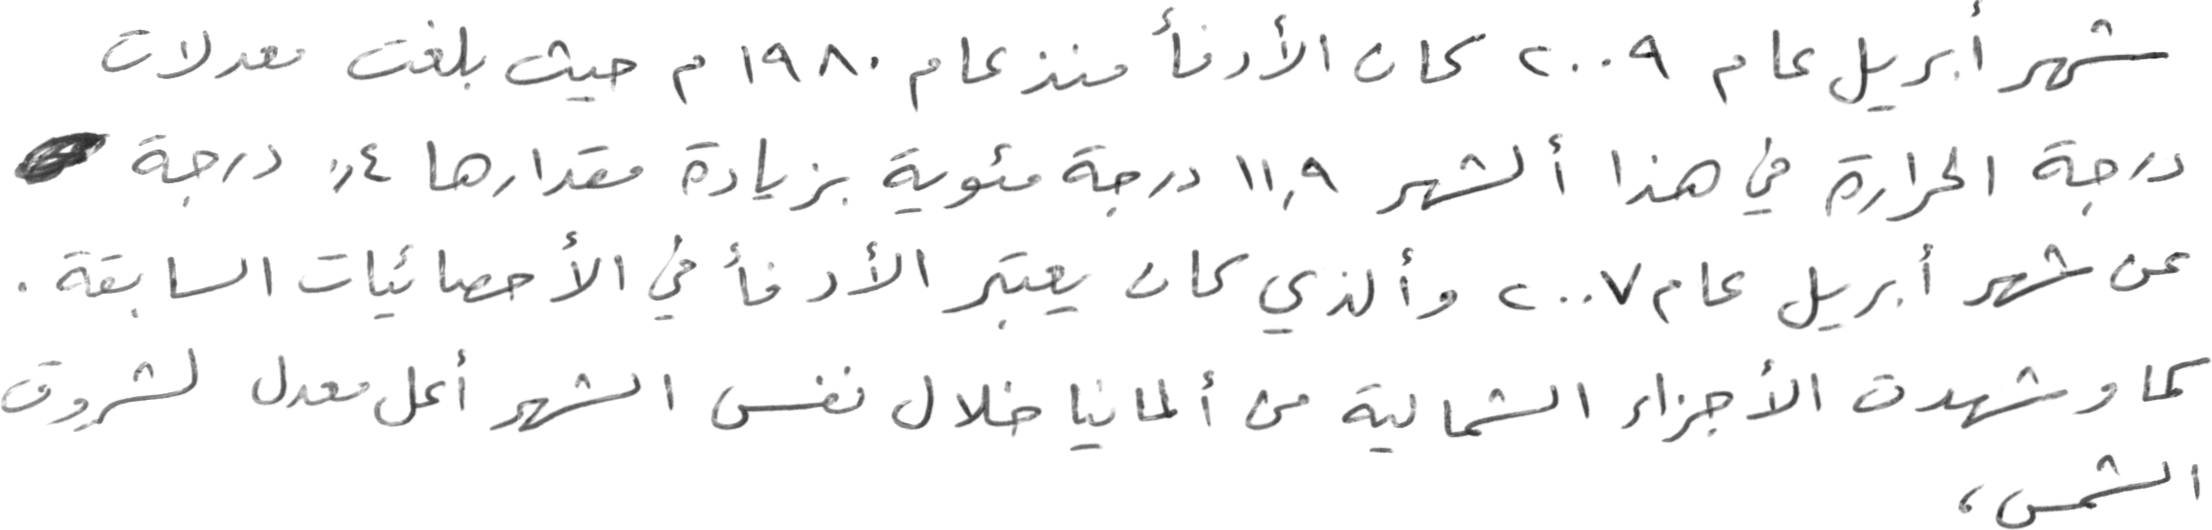 شهر أبريل عام ٢٠٠٩ كان الأدفأ منذ عام ١٩٨٠ م حيث بلغت معدلات
درجة الحرارة في هذا ألشهر ١١,٩ درجة مئوية بزيادة مقدارها ٠,٤ درجة
عن شهر أبريل عام ٢٠٠٧ وألذي كان يعتبر الأدفأ في الأحصائيات السابقة .
كما وشهدت الأجزاء الشمالية من ألمانيا خلال نفس الشهر أعل معدل لشروق
الشمس ،